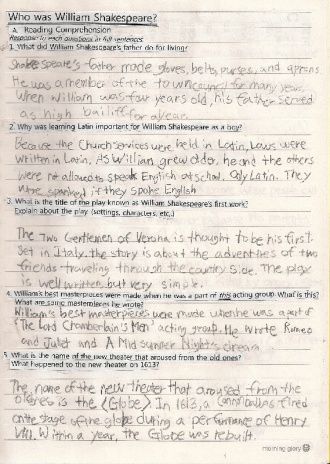 Who was William Shakespeare?
A. Reading Comprehension
Response to each questions in full sentences
1. What did William Shakespeare's father do for living?
Shakespeare's father made gloves, belts, purses, and aprons.
He was a member of the town council for many year.
When William was four years old, his father served
as high bailiff for a year.
2. Why was learning Latin important for William Shakespeare as a boy?
Because the Church services were held in Latin, Laws were
written in Latin. As William grew older, he and the others
were not allowed to speak English at school. Only Latin. They
were spanked if they spoke English
3. What is the title of the play known as William Shakespeare's first work?
Explain about the play (settings, characters, etc.)
The Two Gentlemen of Verona is thought to be his first.
Set in Italy. the story is about the adventures of two
friends traveling through the country side. The play
is well written, but very simple.
4. William's best masterpieces were made when he was a part of this acting group. What is this?
What are some masterpieces he wrote?
William's best masterpieces were made when he was a part of
"The Lord Chamberlain's Men" acting group. He wrote Romeo
and Juliet and A Mid summer Night's dream.
5. What is the name of the new theater that aroused from the old ones?
What happened to the new theater on 1613?
The name of the new theater that aroused from the
old ones is the <Globe>. In 1613, a Cannonball was fired
on the stage of the globe during a performance of Henry
VIII. Within a year, the Globe was rebuilt.
morning glory